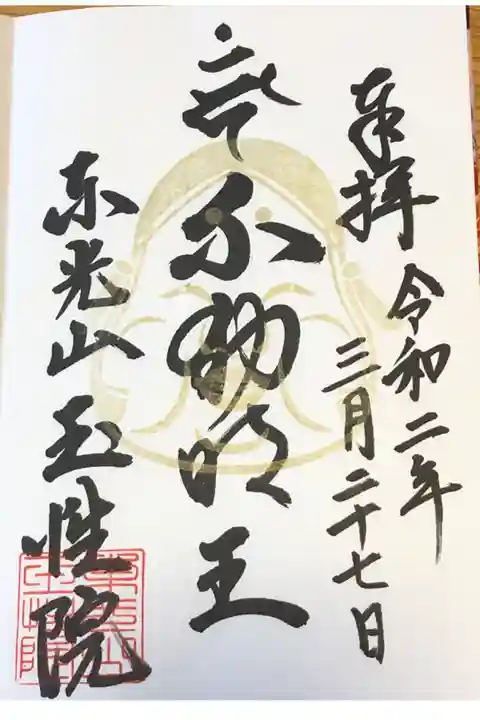 奉拝
令和二年
三月二十七日
不動明王
東光山玉性院